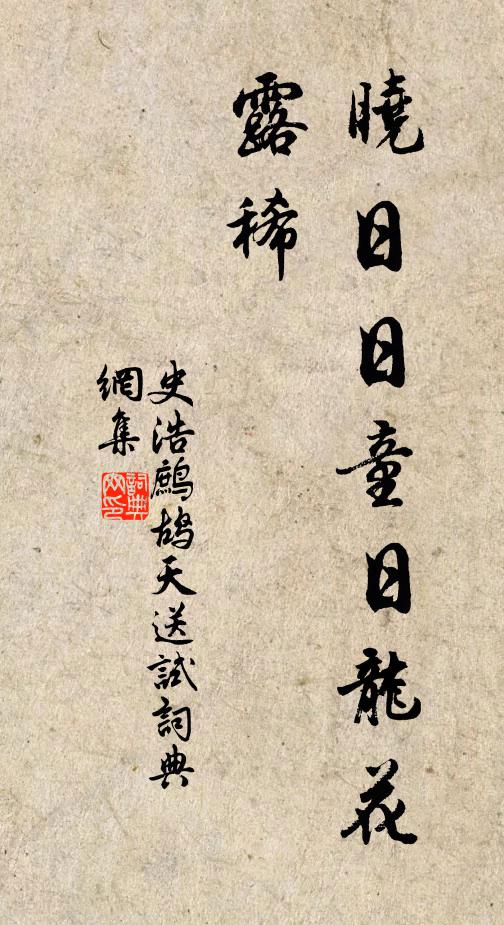 曉日日童日龍花
露稀
史浩鷓鴣天送試詞典
網集
詞典網印